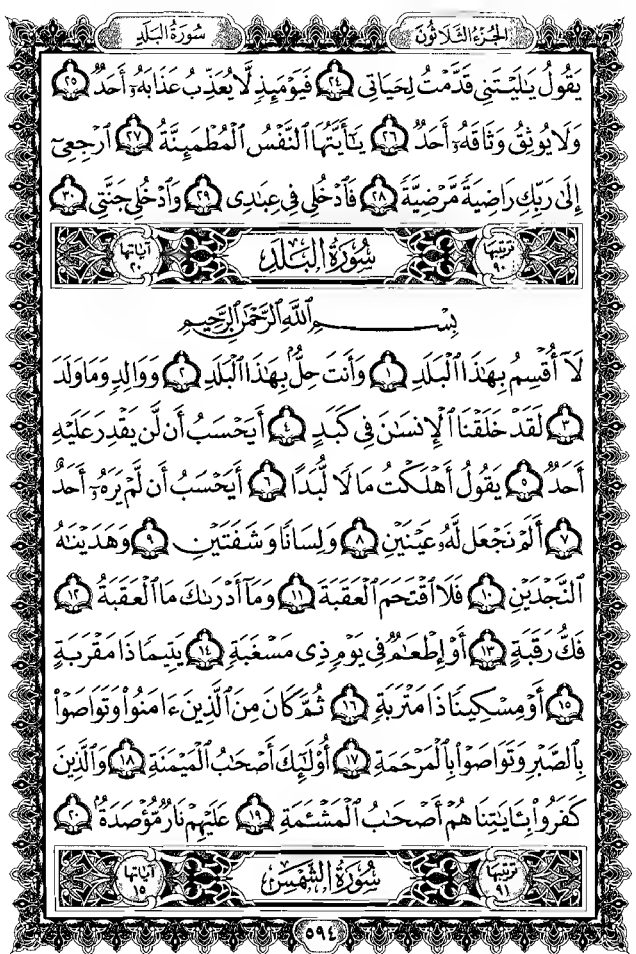 الجزء الثلاثون
سورة البلد
يَقُولُ يَٰلَيۡتَنِي قَدَّمۡتُ لِحَيَاتِي ٢٤ فَيَوۡمَئِذٖ لَّا يُعَذِّبُ عَذَابَهُۥٓ أَحَدٞ ٢٥
وَلَا يُوثِقُ وَثَاقَهُۥٓ أَحَدٞ ٢٦ يَٰٓأَيَّتُهَا ٱلنَّفۡسُ ٱلۡمُطۡمَئِنَّةُ ٢٧ ٱرۡجِعِيٓ
إِلَىٰ رَبِّكِ رَاضِيَةٗ مَّرۡضِيَّةٗ ٢٨ فَٱدۡخُلِي فِي عِبَٰدِي ٢٩ وَٱدۡخُلِي جَنَّتِي ٣٠
ترتيبها ٩٠ سورة البلد آياتها ٢٠
بِسۡمِ ٱللَّهِ ٱلرَّحۡمَٰنِ ٱلرَّحِيمِ
لَآ أُقۡسِمُ بِهَٰذَا ٱلۡبَلَدِ ١ وَأَنتَ حِلُّۢ بِهَٰذَا ٱلۡبَلَدِ ٢ وَوَالِدٖ وَمَا وَلَدَ
٣ لَقَدۡ خَلَقۡنَا ٱلۡإِنسَٰنَ فِي كَبَدٍ ٤ أَيَحۡسَبُ أَن لَّن يَقۡدِرَ عَلَيۡهِ
أَحَدٞ ٥ يَقُولُ أَهۡلَكۡتُ مَالٗا لُّبَدًا ٦ أَيَحۡسَبُ أَن لَّمۡ يَرَهُۥٓ أَحَدٌ
٧ أَلَمۡ نَجۡعَل لَّهُۥ عَيۡنَيۡنِ ٨ وَلِسَانٗا وَشَفَتَيۡنِ ٩ وَهَدَيۡنَٰهُ
ٱلنَّجۡدَيۡنِ ١٠ فَلَا ٱقۡتَحَمَ ٱلۡعَقَبَةَ ١١ وَمَآ أَدۡرَىٰكَ مَا ٱلۡعَقَبَةُ ١٢
فَكُّ رَقَبَةٍ ١٣ أَوۡ إِطۡعَٰمٞ فِي يَوۡمٖ ذِي مَسۡغَبَةٖ ١٤ يَتِيمٗا ذَا مَقۡرَبَةٍ
١٥ أَوۡ مِسۡكِينٗا ذَا مَتۡرَبَةٖ ١٦ ثُمَّ كَانَ مِنَ ٱلَّذِينَ ءَامَنُواْ وَتَوَاصَوۡاْ
بِٱلصَّبۡرِ وَتَوَاصَوۡاْ بِٱلۡمَرۡحَمَةِ ١٧ أُوْلَٰٓئِكَ أَصۡحَٰبُ ٱلۡمَيۡمَنَةِ ١٨ وَٱلَّذِينَ
كَفَرُواْ بِـَٔايَٰتِنَا هُمۡ أَصۡحَٰبُ ٱلۡمَشۡـَٔمَةِ ١٩ عَلَيۡهِمۡ نَارٞ مُّؤۡصَدَةُۢ ٢٠
ترتيبها ٩١ سورة الشمس آياتها ١٥
٥٩٤